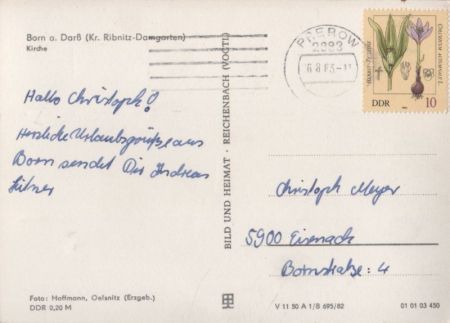 Born a. Darß (Kr. Ribnitz-Damgarten)
Kirche
Hallo Christoph!
Herzliche Urlaubsgrüße aus
Born sendet Dir Andreas
Foto: Hoffmann, Oelsnitz (Erzgeb.)
DDR 0,20 M
BILD UND HEIMAT · REICHENBACH (VOGTL)
PREROW
2383
DDR
10
Christoph Meyer
5900 Eisenach
Bornstraße: 4
V 11 50 A 1/B 695/82
01 01 03 450